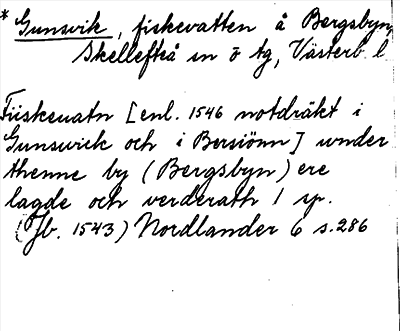 * Gunsvik, fiskevatten å Bergsbyn,
Skellefteå sn ö tg, Västerb. l
Fiiskeuatn [enl. 1546 notdräkt i
Gunswick och i Bersiönn] wnder
thenne by (Bergsbyn) ere
lagde och verderath 1 sp.
(Jb. 1543) Nordlander 6 s. 286